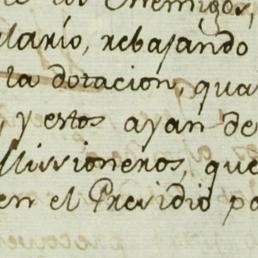 los Enemigos,
lario, rebajando
la dotacion, qua
, y estos ayan de
Missioneros, que
en el Presidio po